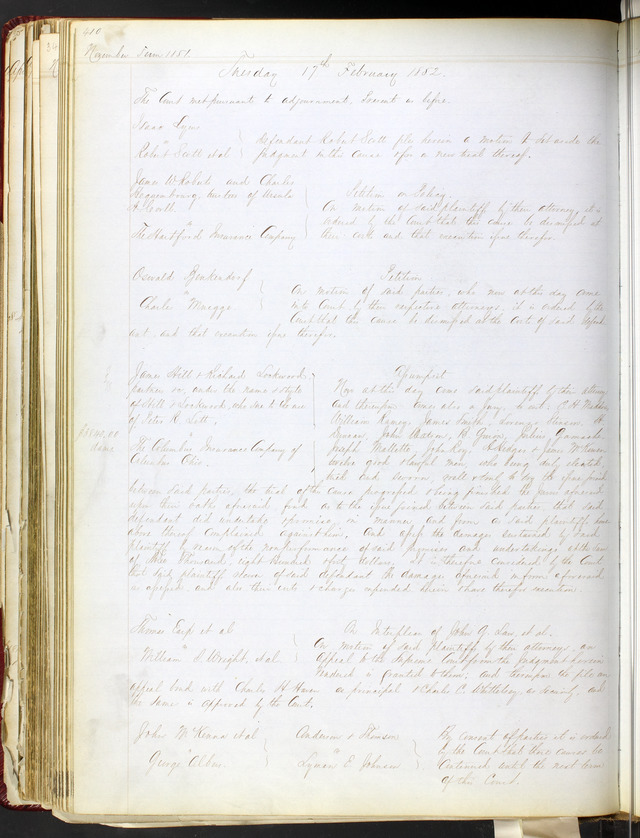 410
November Term 1851.
Tuesday 17th February 1852.
The Court met pursuant to adjournment. Present as before.
Isaac Lyns
vs
Robert Scott et al
Defendant Robert Scott files herein a motion to set aside the
Judgment in this cause & for a new trial thereof.
James W Roberts and Charles
A Howell
vs
The Hartford Insurance Company
Petition on Policy.
On motion of said plaintiff by their attorney, it is
ordered by the Court that this cause be dismissed at
their costs and that execution issue therefor.
Oswald Benkendorf
Charles Muegge
Petition
On motion of said parties, who now at this day come
into Court by their respective attorneys, it is ordered by the
Court that this cause be dismissed at the costs of said Defend
ant, and that execution issue therefor.
James Hill & Richard Lockwood
partners &c, under the name & style
of Hill & Lockwood, who sue to the use
of Peter R. Lott,
vs
The Columbus Insurance Company of
Columbus Ohio.
damd
Assumpsit
Now at this day come said plaintiff by their attorney
and thereupon comes also a jury, to wit,
William James Smith,
John H
Joseph John Roy,
twelve good & lawful men, who being duly elected,
tried and sworn, well & truly to try the issue joined
between said parties, the trial of the cause progressed & being finished the jurors aforesaid
upon their oaths aforesaid find as to the issue joined between said parties that said
defendant did undertake & promise in manner and form as said plaintiff have
above thereof complained against him, And assess the damages sustained by said
plaintiff by reason of the non performance of said promises and undertakings at the sum
of Three Thousand, eight hundred & fifty dollars. It is therefore considered by the Court
that said plaintiff recover of said defendant the damages aforesaid in form aforesaid
so assessed, and also their costs & charges expended herein & have therefor execution.
Thomas et al
vs
William S Wright, et al.
On Interplea of John G. Law, et al.
On motion of said plaintiff by their attorneys, an
Appeal to the Supreme Court from the Judgment herein
rendered is granted to them; and thereupon they file an
appeal bond with Charles H as principal & Charles C. Whittlesey as security, and
the same is approved by the Court.
John McKenna et al
George Albus.
Anderson &
vs
Lyman E Johnson
By consent of parties it is ordered
by the Court that these causes be
Continued until the next term
of this Court.